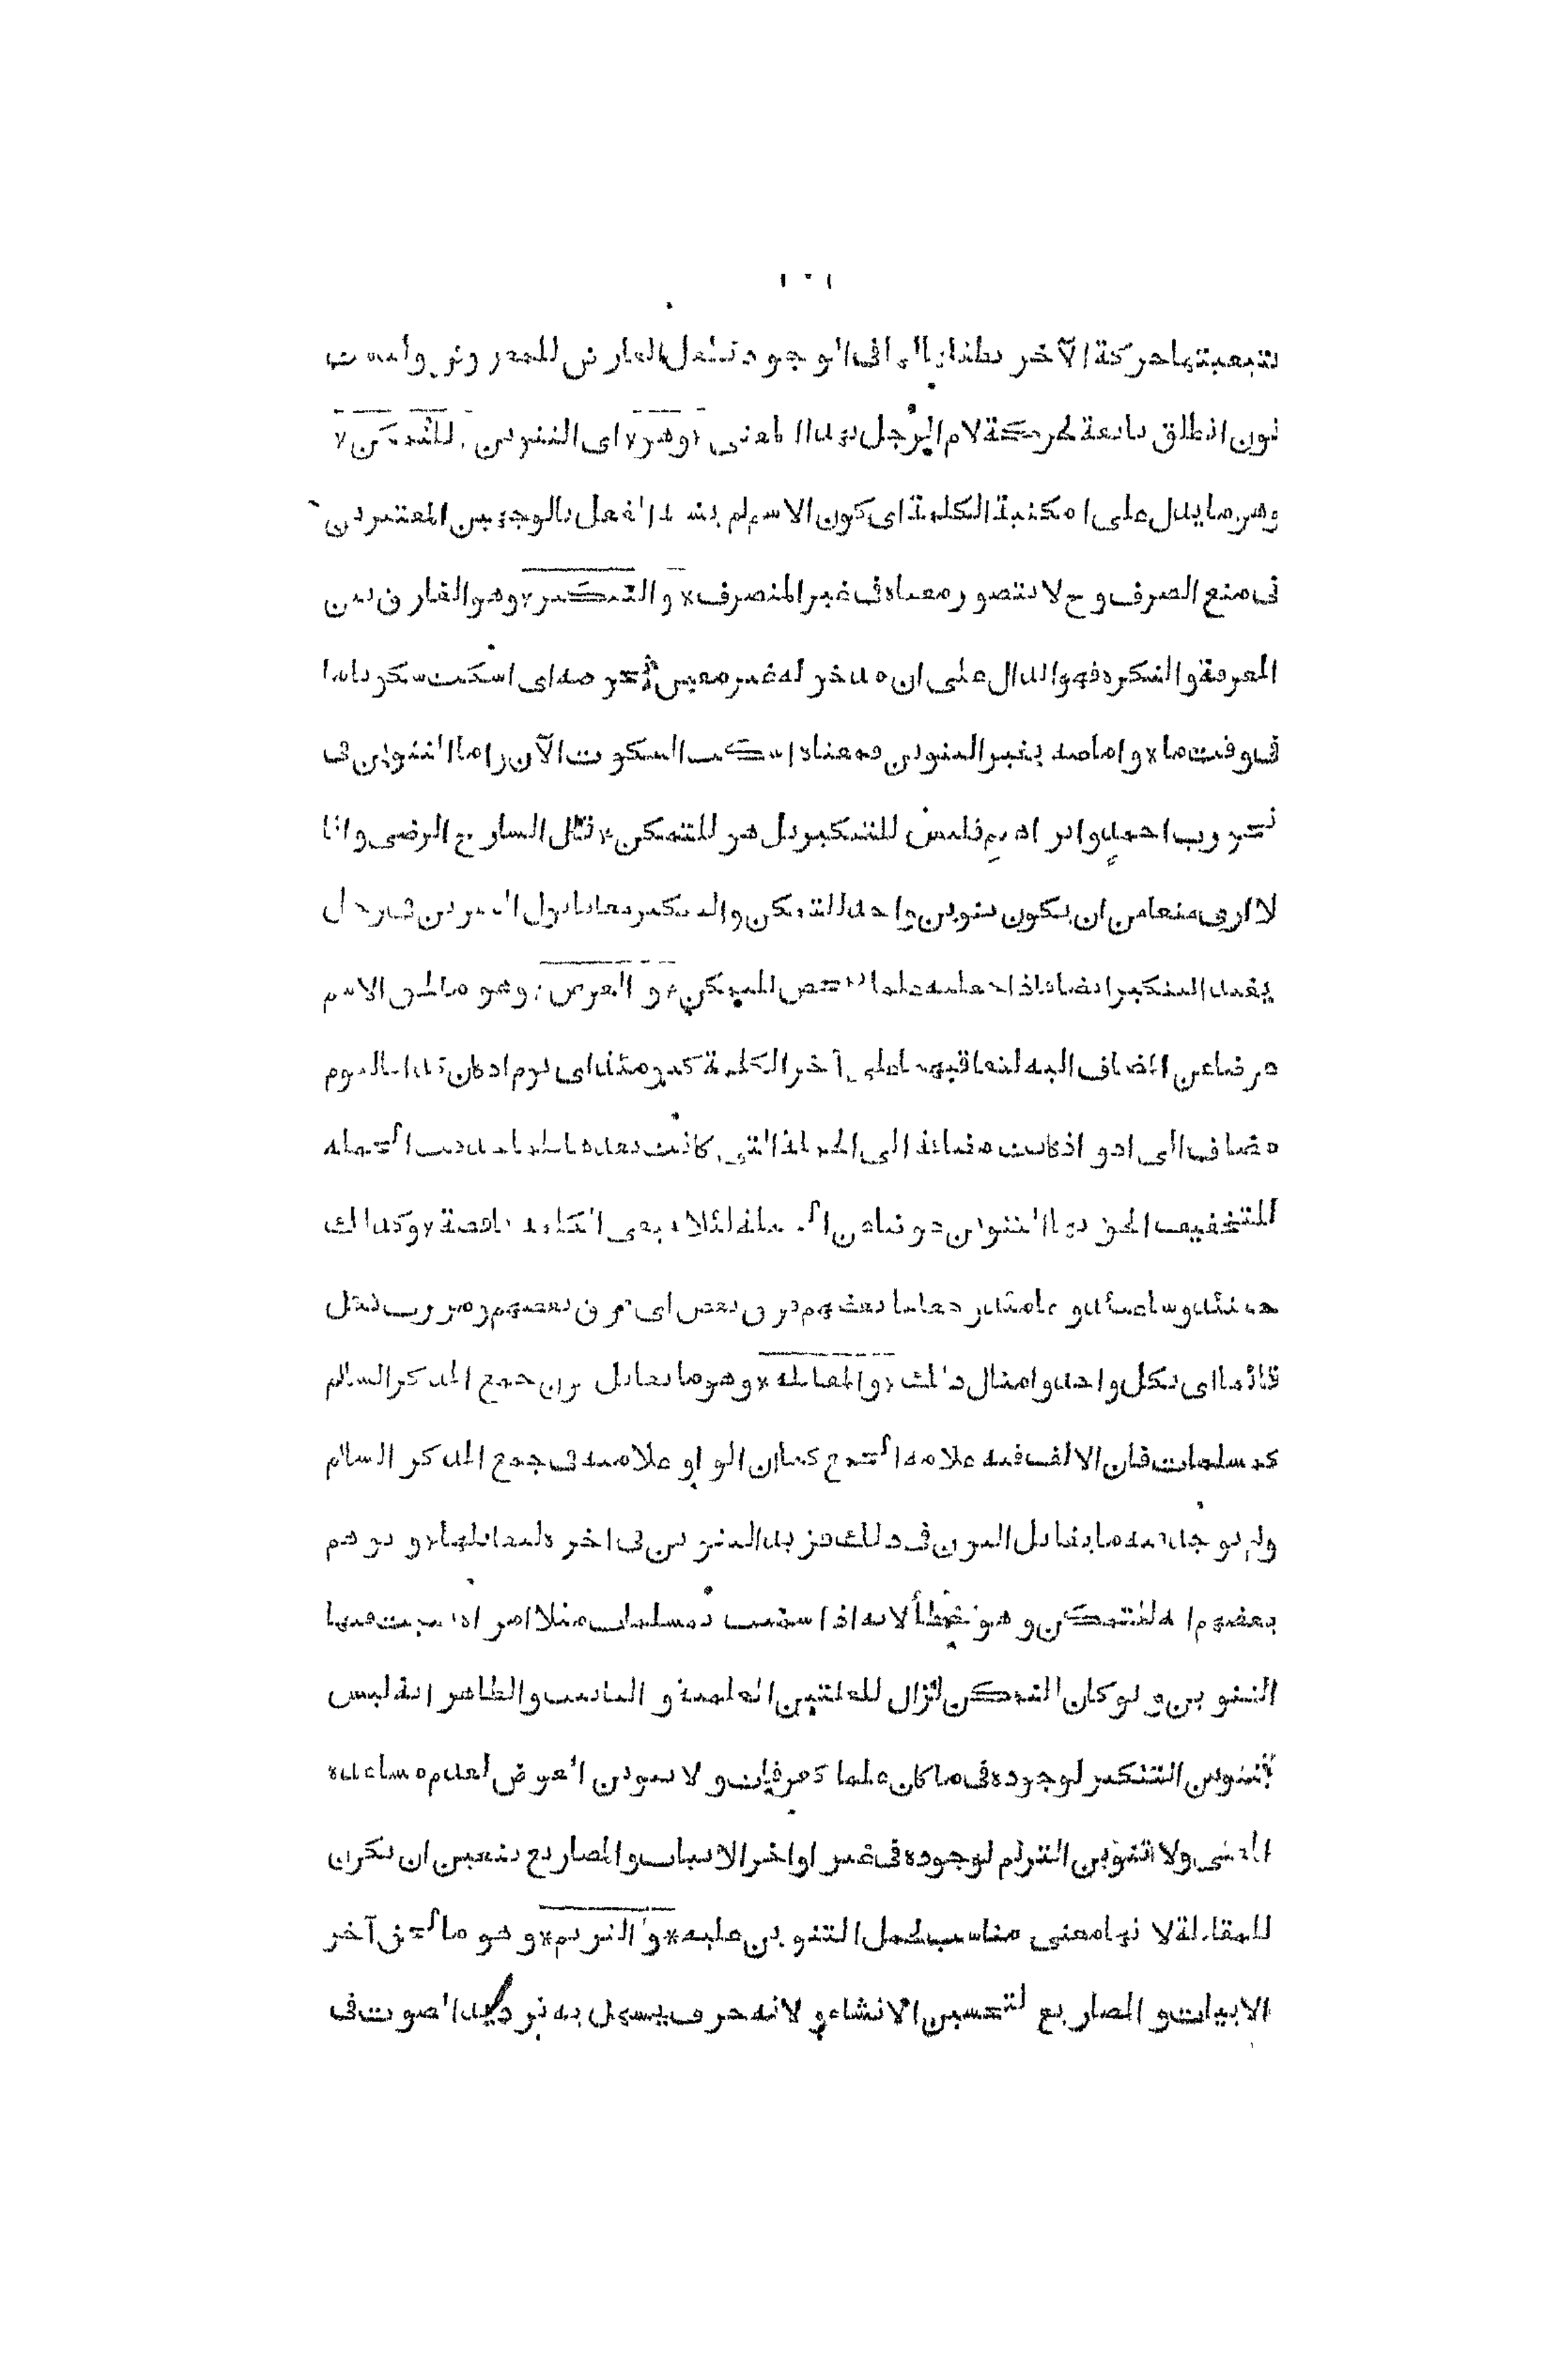 بتبعيتها حركة الآخر في الوجود العارض للمعروض وليست
نون انطلق تابعة لحركة لام الرجل بهذا المعنى * وهو * اى التنوين * للتمكن *
وهو ما يدل على امكنية الكلمة اى كون الاسم لم يشبه الفعل بالوجهين المعتبرين
فى منع الصرف وح لا يتصور معناه فى غير المنصرف * والتنكير * وهو الفارق بين
المعرفة والنكرة فهو الدال على ان مدخوله غير معين نحو صه اى اسكت سكوتا ما
فى وقت ما * واما صه بغير التنوين فمعناه اسكت السكوت الآن واما التنوين فى
نحو رب احمد وابراهيم فليس للتنكير بل هو للتمكن * قال الشارح الرضى وانا
لا ارى منعا من ان يكون تنوين واحد للتمكن والتنكير معا فاقول التنوين فى رجل
يفيد التنكير ايضا فاذا جعلته علما تمحض للتمكن * والعوض * وهو ما لحق الاسم
عوضا عن المضاف اليه لتعاقبهما على آخر الكلمة كيومئذ اى يوم اذ كان كذا فاليوم
مضاف الى اذ واذ كانت مضافة الى الجملة التى كانت بعدها فلما حذفت الجملة
للتخفيف الحق بها التنوين عوضا عن الجملة لئلا يبقى الكلمة ناقصة * وكذلك
حينئذ وساعتئذ وعامئذ وجعلنا بعضهم فوق بعض اى فوق بعضهم ومررت بكل
قائما اى بكل واحد وامثال ذلك * والمقابلة * وهو ما يقابل نون جمع المذكر السالم
كمسلمات فان الالف فيه علامة الجمع كما ان الواو علامته فى جمع المذكر السالم
ولم يوجد فيه ما يقابل النون فى ذلك فزيد التنوين فى اخره ليقابلها * وتوهم
بعضهم انه للتمكن وهو خطأ لانه اذا سميت بمسلمات مثلا امرأة ثبتت فيها
التنوين ولو كان للتمكن لزال للعلتين العلمية والتانيث والظاهر انه ليس
بتنوين التنكير لوجوده فى ما كان علما كعرفات ولا تنوين العوض لعدم مساعدة
المعنى ولا تنوين الترنم لوجوده فى غير اواخر الابيات والمصاريع فتعين ان يكون
للمقابلة لانها معنى مناسب لحمل التنوين عليه * والترنم * وهو ما لحق آخر
الابيات والمصاريع لتحسين الانشاد ولانه حرف يسهل به ترديد الصوت فى